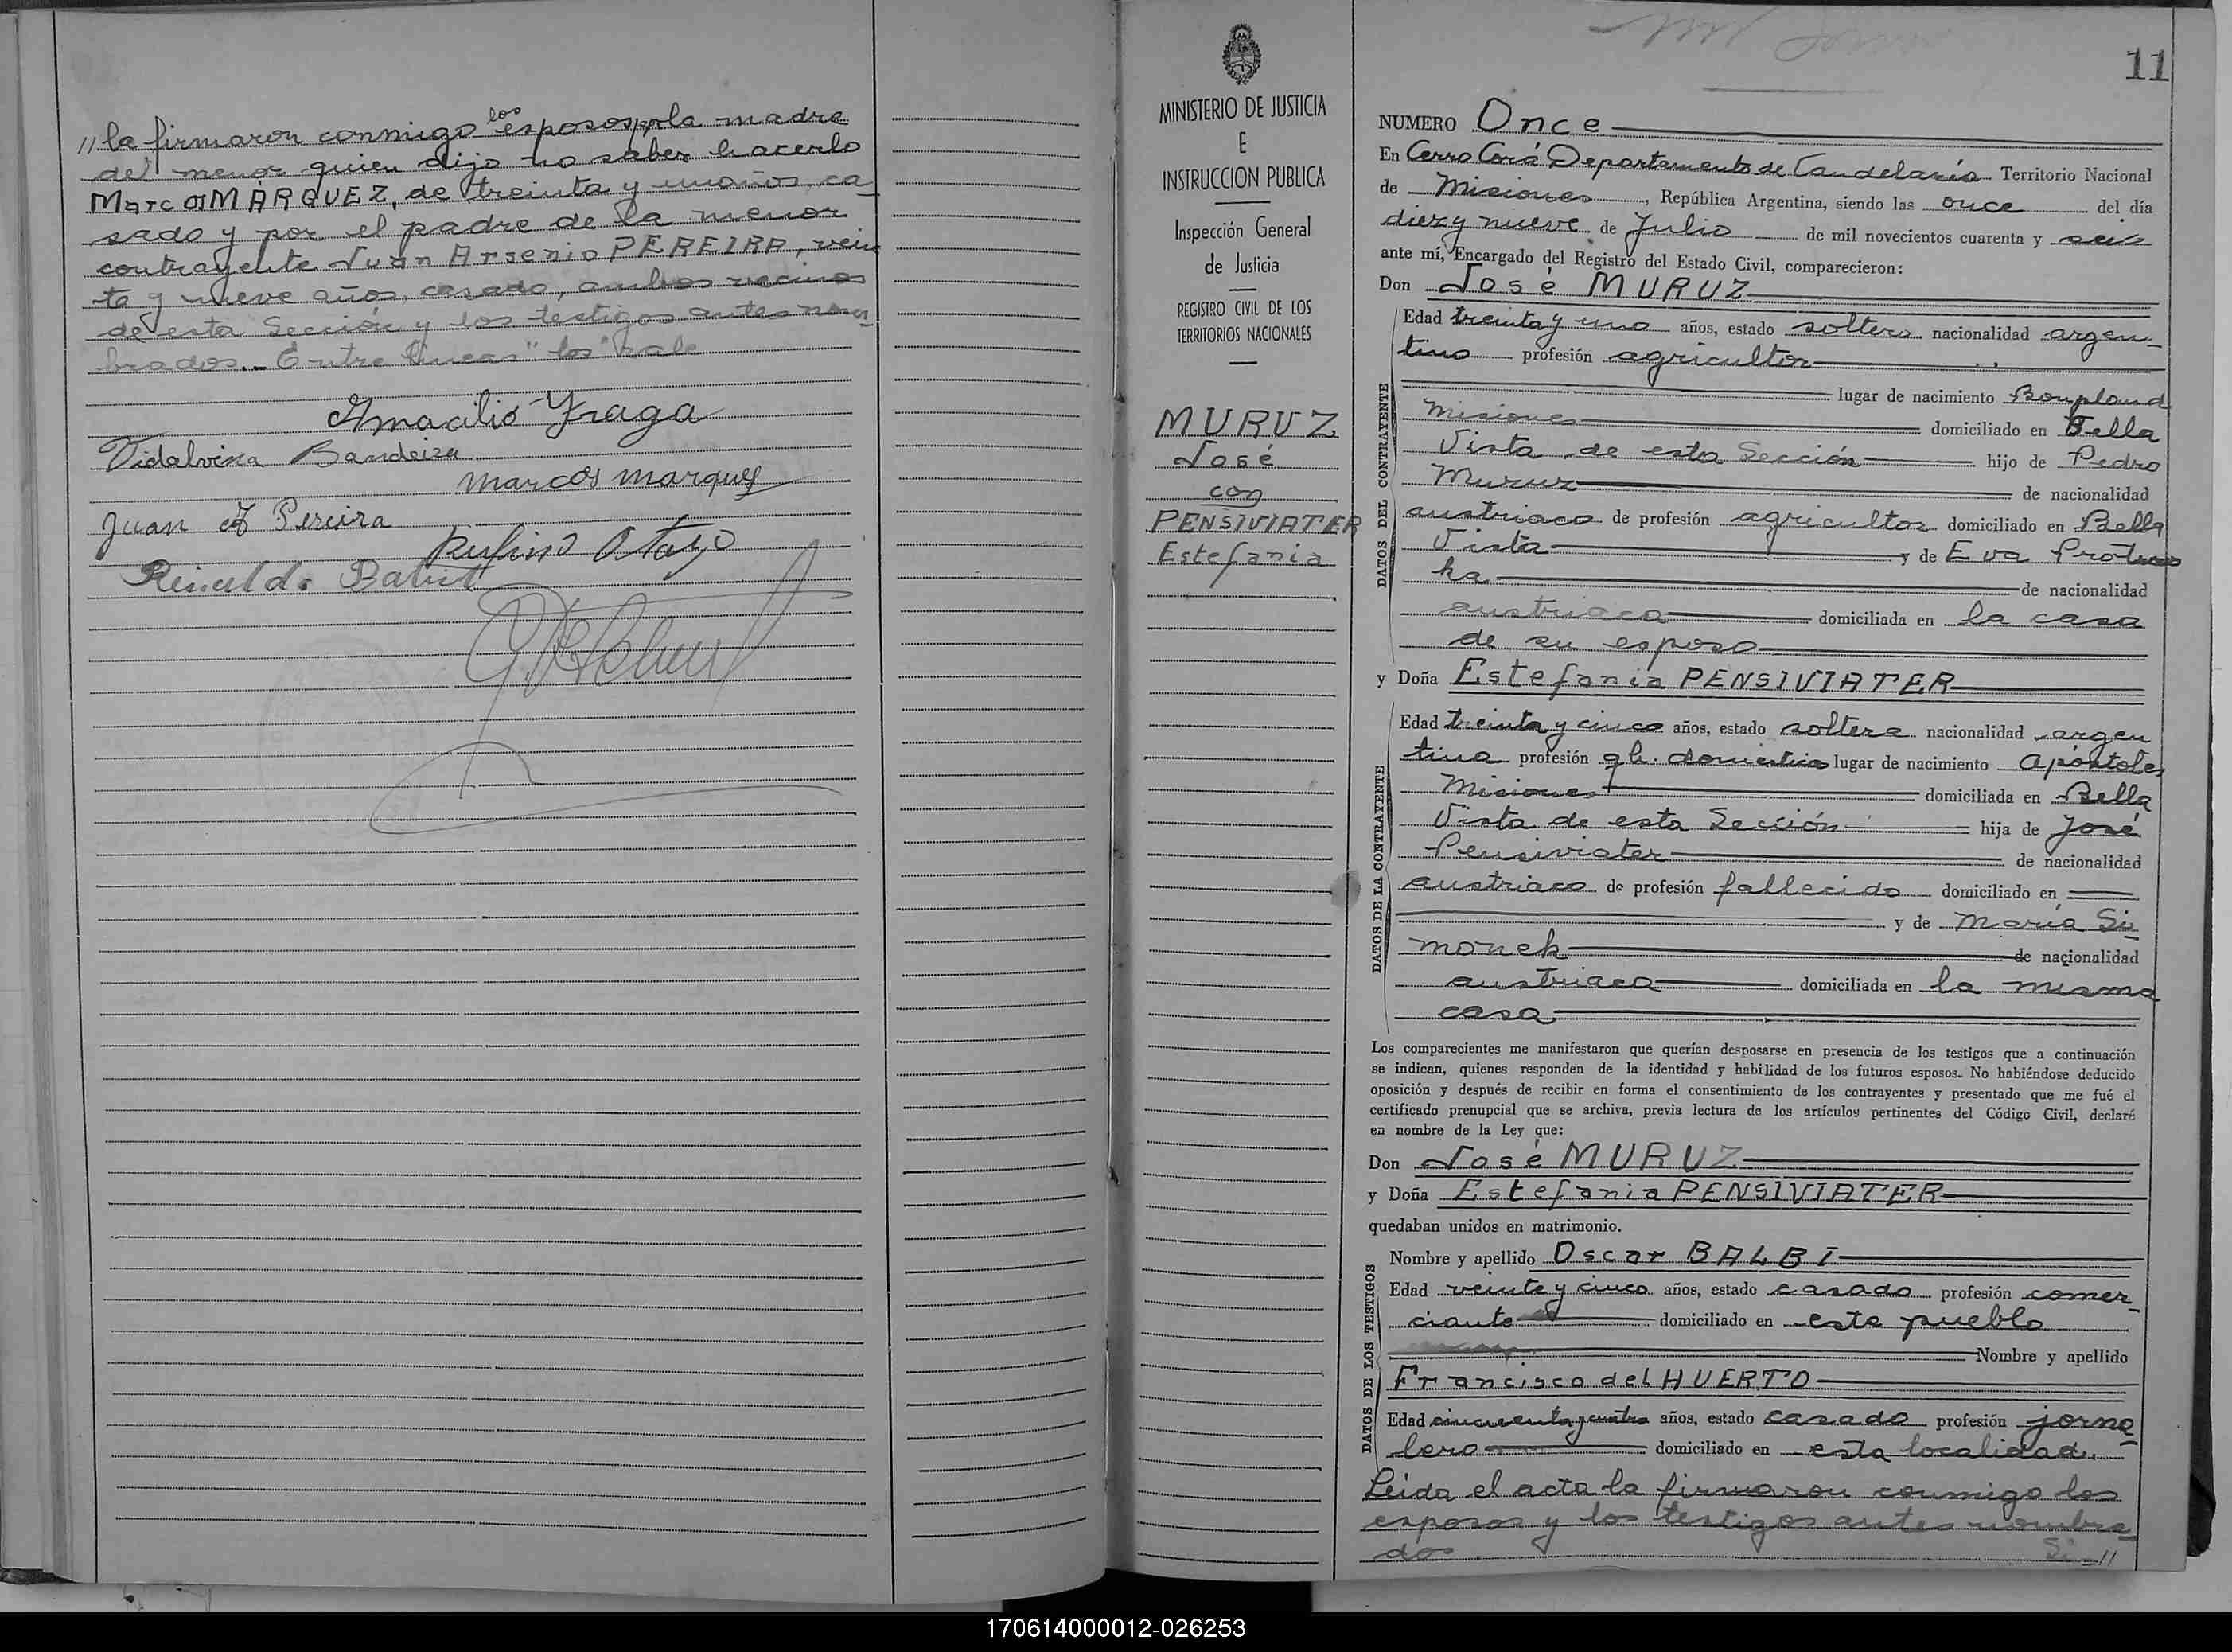 //la firmaron conmigo los esposos, por la madre
del menor quien dijo no saber hacerlo
Marcos MÁRQUEZ, de treinta y un años, ca_
sado y por el padre de la menor
contrayente Juan Arsenio PEREIRA, vein
te y nueve años, casado, ambos vecinos
de esta Sección y los testigos antes nom_
brados._ Entre líneas "los" vale
Amacilio Fraga
Vidalvina Bandeira
marcos marquez
Juan A Pereira
Rufino Otazo
Reinaldo
MINISTERIO DE JUSTICIA
E
INSTRUCCION PUBLICA
Inspección General
de Justicia
REGISTRO CIVIL DE LOS
TERRITORIOS NACIONALES
MURUZ
José
con
PENSIVIATER
Estefania
11
NUMERO Once
En Cerro Corá Departamento de Candelaria Territorio Nacional
de Misiones, República Argentina, siendo las once del día
diez y nueve de Julio de mil novecientos cuarenta y seis
ante mí, Encargado del Registro del Estado Civil, comparecieron:
Don José MURUZ
DATOS DEL CONTRAYENTE
Edad treinta y uno años, estado soltero nacionalidad argen_
tino profesión agricultor
lugar de nacimiento Bonpland
Misiones domiciliado en Bella
Vista de esta Sección hijo de Pedro
Muruz de nacionalidad
austriaco de profesión agricultor domiciliado en Bella
Vista y de Eva
ka de nacionalidad
austriaca domiciliada en la casa
de su esposo
y Doña Estefania PENSIVIATER
DATOS DE LA CONTRAYENTE
Edad treinta y cinco años, estado soltera nacionalidad argen
tina profesión q.h. domésticos lugar de nacimiento Apóstoles
Misiones domiciliada en Bella
Vista de esta Sección hija de José
Pensiviater de nacionalidad
austriaco de profesión fallecido domiciliado en
y de María Si_
monek de nacionalidad
austriaca domiciliada en la misma
casa
Los comparecientes me manifestaron que querían desposarse en presencia de los testigos que a continuación
se indican, quienes responden de la identidad y habilidad de los futuros esposos. No habiéndose deducido
oposición y después de recibir en forma el consentimiento de los contrayentes y presentado que me fué el
certificado prenupcial que se archiva, previa lectura de los artículos pertinentes del Código Civil, declaré
en nombre de la Ley que:
Don José MURUZ
y Doña Estefania PENSIVIATER
quedaban unidos en matrimonio.
DATOS DE LOS TESTIGOS
Nombre y apellido Oscar BALBI
Edad veinte y cinco años, estado casado profesión comer_
ciante domiciliado en este pueblo
Nombre y apellido
Francisco del HUERTO
Edad cincuenta y cuatro años, estado casado profesión jorna_
lero domiciliado en esta localidad.
Leida el acta la firmaron conmigo los
esposos y los testigos antes nombra_
dos. Si_//
170614000012-026253